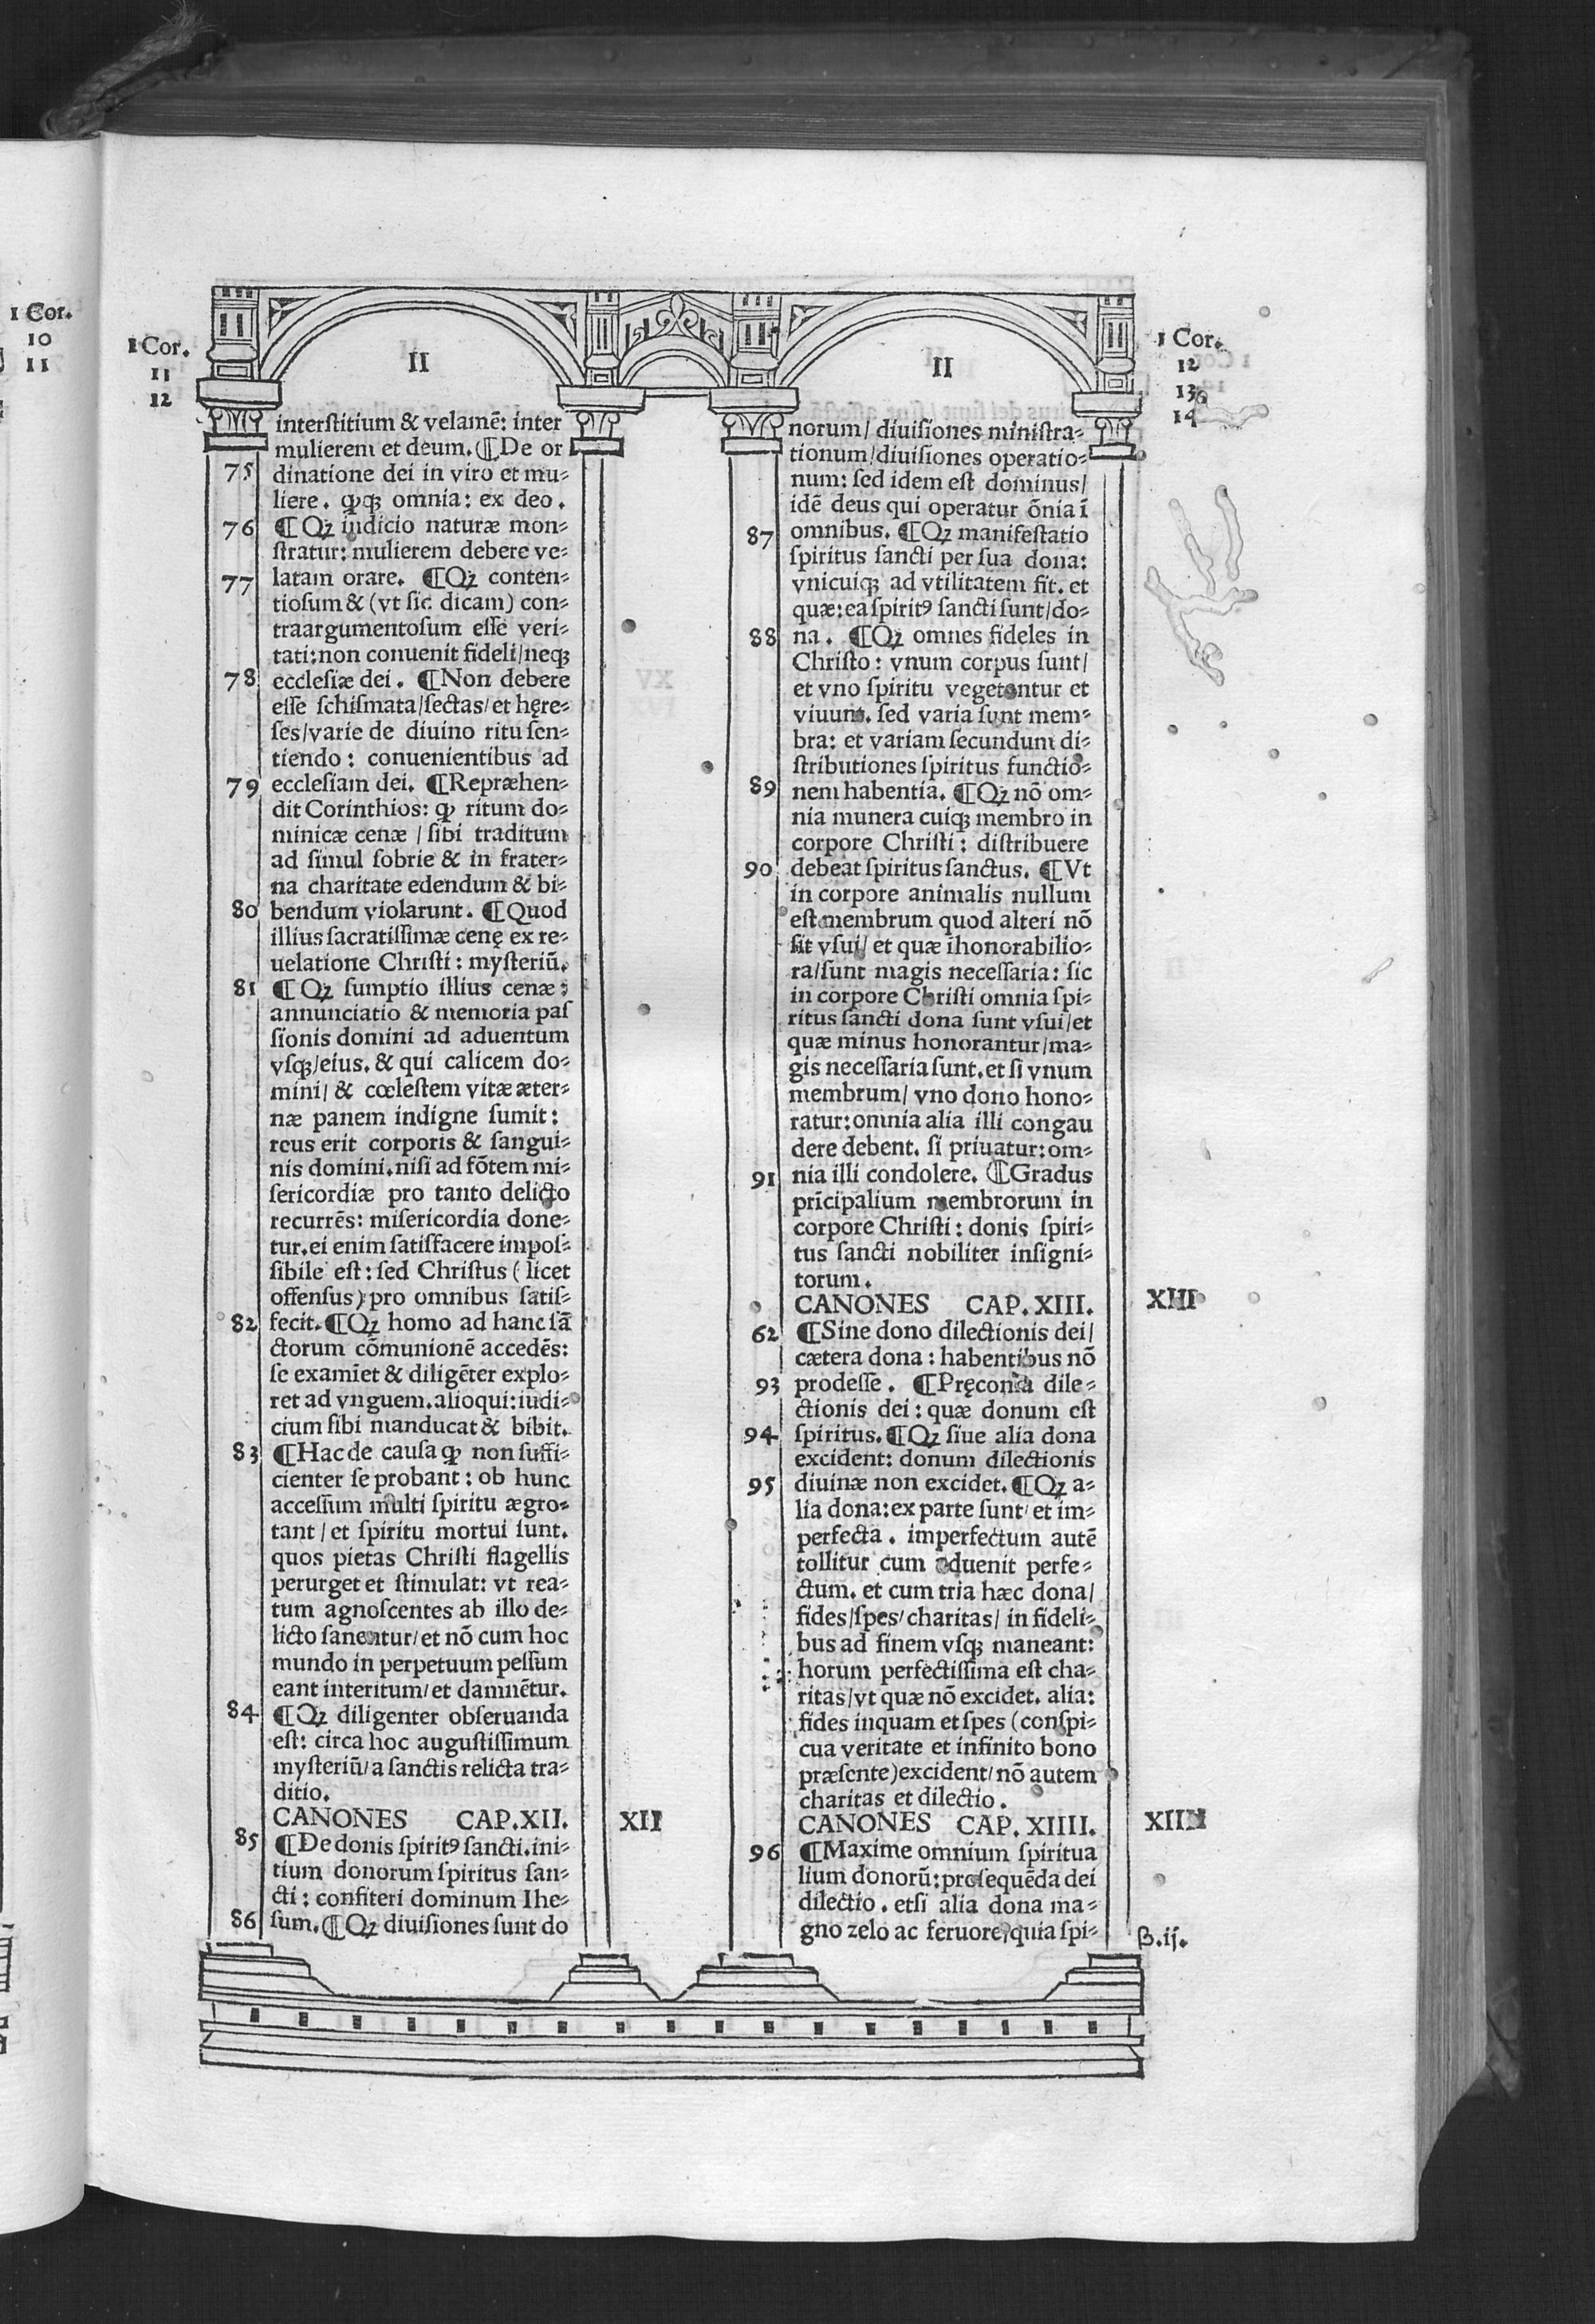 1 Cor.
10
11
1 Cor.
11
12
II
interstitium & velamē: inter
mulierem et deum. ¶De or
75 dinatione dei in viro et mu-
liere. ꝙqꝫ omnia: ex deo.
76 ¶Qꝫ indicio naturæ mon-
stratur: mulierem debere ve-
77 latam orare. ¶Qꝫ conten-
tiosum & (vt sic dicam) con-
traargumentosum esse veri-
tati: non conuenit fideli/neqꝫ
78 ecclesiæ dei. ¶Non debere
esse schismata/sectas/et hęre-
ses/varie de diuino ritu sen-
tiendo: conuenientibus ad
79 ecclesiam dei. ¶Repræhen-
dit Corinthios: ꝙ ritum do-
minicæ cenæ / sibi traditum
ad simul sobrie & in frater-
na charitate edendum & bi-
80 bendum violarunt. ¶Quod
illius sacratissimæ cenę ex re-
uelatione Christi: mysteriū.
81 ¶Qꝫ sumptio illius cenæ:
annunciatio & memoria pas
sionis domini ad aduentum
vsqꝫ/eius. & qui calicem do-
mini/ & cœlestem vitæ æter-
næ panem indigne sumit:
reus erit corporis & sangui-
nis domini. nisi ad fōtem mi-
sericordiæ pro tanto delicto
recurrēs: misericordia done-
tur. ei enim satisfacere impos-
sibile est: sed Christus (licet
offensus) pro omnibus satis-
82 fecit. ¶Qꝫ homo ad hanc sā
ctorum cōmunionē accedēs:
se examīet & diligēter explo-
ret ad vnguem. alioqui: iudi-
cium sibi manducat & bibit.
83 ¶Hac de causa ꝙ non suffi-
cienter se probant: ob hunc
accessum multi spiritu ægro-
tant/ et spiritu mortui sunt.
quos pietas Christi flagellis
perurget et stimulat: vt rea-
tum agnoscentes ab illo de-
licto sanentur/et nō cum hoc
mundo in perpetuum pessum
eant interitum/et damnētur.
84 ¶Qꝫ diligenter obseruanda
est: circa hoc augustissimum
mysteriū/a sanctis relicta tra-
ditio.
CANONES CAP. XII. XII
85 ¶De donis spiritꝰ sancti. ini-
tium donorum spiritus san-
cti: confiteri dominum Ihe-
86 sum. ¶Qꝫ diuisiones sunt do
1 Cor.
12
13
14
II
norum/ diuisiones ministra-
tionum/diuisiones operatio-
num: sed idem est dominus/
idē deus qui operatur ōnia ī
87 omnibus. ¶Qꝫ manifestatio
spiritus sancti per sua dona:
vnicuiqꝫ ad vtilitatem fit. et
quæ: ea spiritꝰ sancti sunt/do-
88 na. ¶Qꝫ omnes fideles in
Christo: vnum corpus sunt/
et vno spiritu vegetantur et
viuunt. sed varia sunt mem-
bra: et variam secundum di-
stributiones spiritus functio-
89 nem habentia. ¶Qꝫ nō om-
nia munera cuiqꝫ membro in
corpore Christi: distribuere
90 debeat spiritus sanctus. ¶Vt
in corpore animalis nullum
est membrum quod alteri nō
sit vsui/ et quæ īhonorabilio-
ra/sunt magis necessaria: sic
in corpore Christi omnia spi-
ritus sancti dona sunt vsui/et
quæ minus honorantur/ma-
gis necessaria sunt. et si vnum
membrum/ vno dono hono-
ratur: omnia alia illi congau
dere debent. si priuatur: om-
91 nia illi condolere. ¶Gradus
prīcipalium membrorum in
corpore Christi: donis spiri-
tus sancti nobiliter insigni-
torum.
CANONES CAP. XIII. XIII
62 ¶Sine dono dilectionis dei/
cætera dona: habentibus nō
93 prodesse. ¶Pręconia dile-
ctionis dei: quæ donum est
94 spiritus. ¶Qꝫ siue alia dona
excident: donum dilectionis
95 diuinæ non excidet. ¶Qꝫ a-
lia dona: ex parte sunt/ et im-
perfecta. imperfectum autē
tollitur cum aduenit perfe-
ctum. et cum tria hæc dona/
fides/spes/charitas/ in fideli-
bus ad finem vsqꝫ maneant:
horum perfectissima est cha-
ritas/vt quæ nō excidet. alia:
fides inquam et spes (conspi-
cua veritate et infinito bono
præsente) excident/nō autem
charitas et dilectio.
CANONES CAP. XIIII. XIIII
96 ¶Maxime omnium spiritua
lium donorū: prosequēda dei
dilectio. etsi alia dona ma-
gno zelo ac feruore/quia spi-
B.ij.